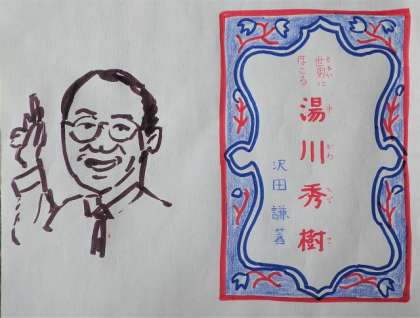 世界に
ほこる
湯川秀樹
沢田謙著